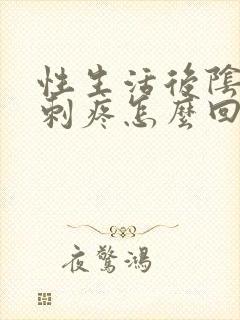 性生活後陰
刺疼怎麼回
夜驚鴻